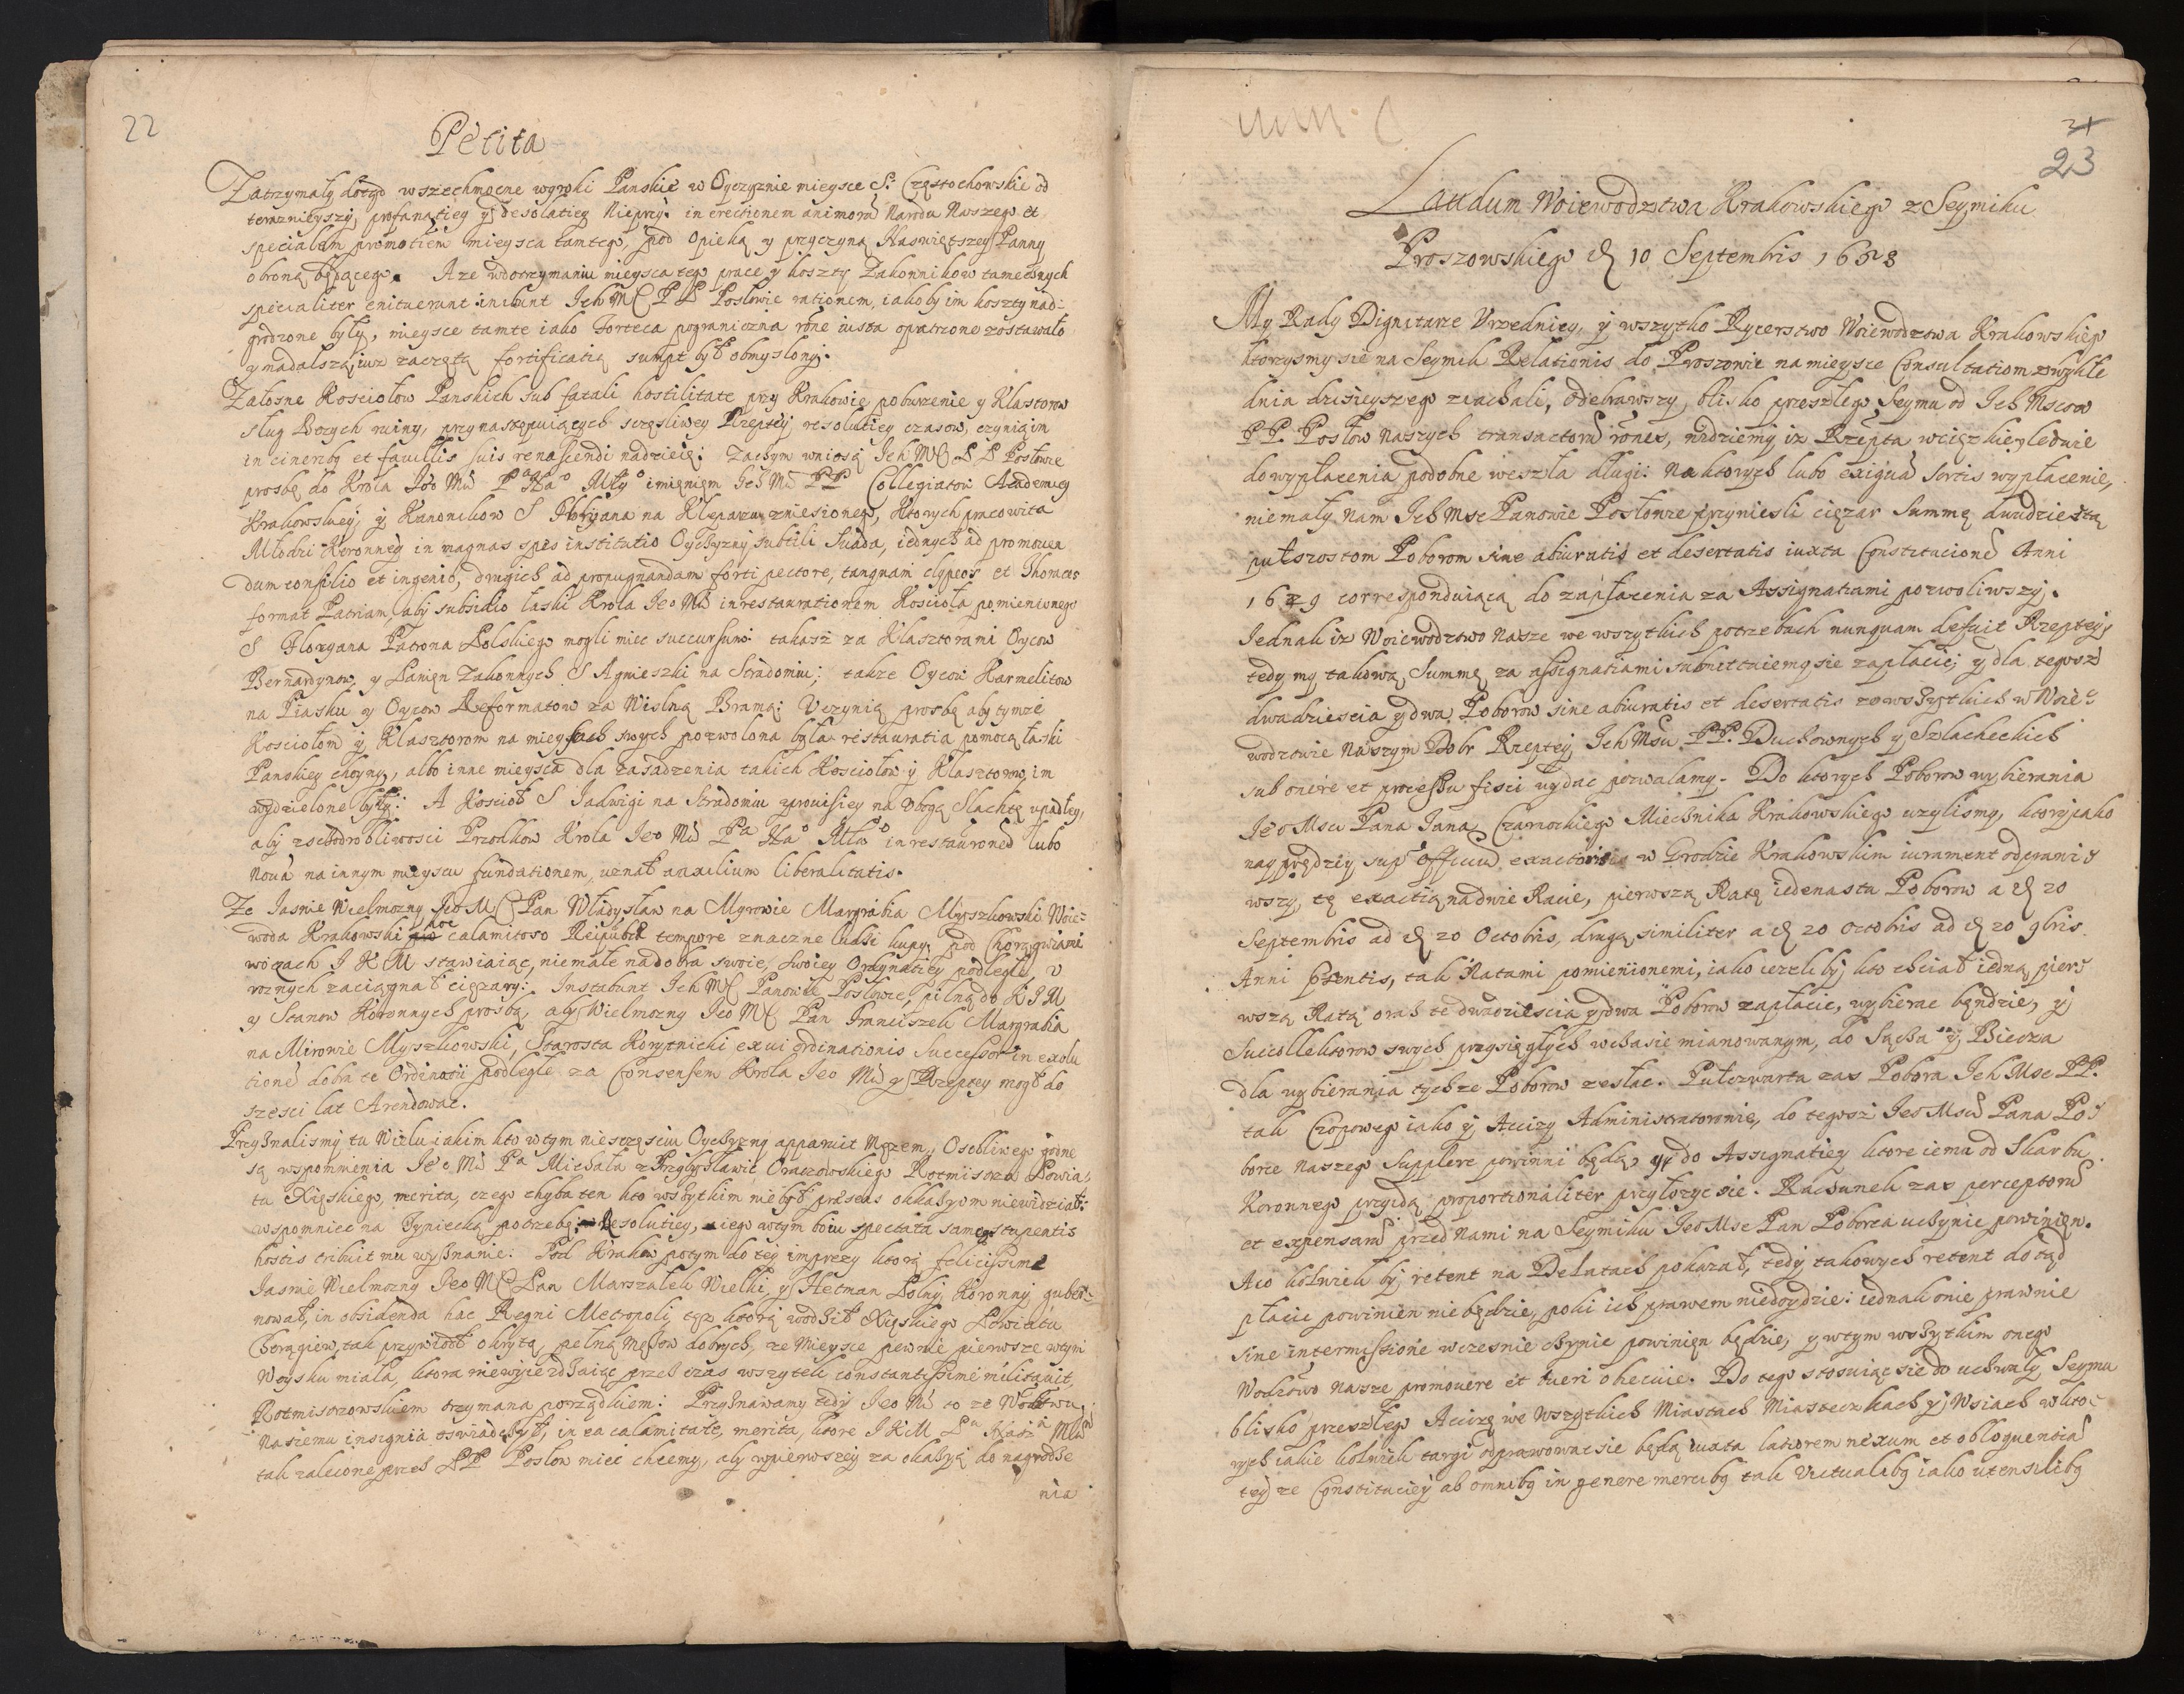 22
Petita
Zatrzymały dotąd wszechmocne wyroki Panskie w Oyczyznie mieysce S. Częstochowskie od
teraznieyszy profanatiey y desolatiey Nieprz: in erectionem animorū Narodu Naszego et
specialem promotiem mieysca tamtego, pod opieką y przyczyną Naswiętszey Panny
obroną będącego. A ze w dotrzymaniu mieysca tego prace y koszty Zakonnikow tamecznych
specialiter enituerunt inibunt Ich MC PP Posłowie rationem, iakoby im koszty nad:
grodzone były, mieysce tamte iako Forteca pograniczna rōne iusta opatrzone zostawało
y na dalszą iuz zaczętą fortificatią sumpt był obmyslony.
Załosne Kosciołow Panskich sub fatali hostilitate przy Krakowie poburzenie y Klasztorow
sług Bozych ruiny, przy nastepuiących sczęsliwey Rzeptey resolutiey czasow, czynią im
in cineribg et favillis suis renascendi nadzieię: Zaczym wniosą Ich MC PP Posłowie
prosbę do Krola Ieo Mci Pa Na Młgo imięnięm Ich Mci PP Collegiatow Academiey
Krakowskiey, y Kanonikow S Floryana na Kleparzu zniesionego, Ktorych pracowita
Młodzi Koronney in magnas spes institutio Oyczyzny subtili suada, iednych ad promoven
dum consilio et ingenio, drugich ad propugnandam forti pectore, tanquam clypeos et Thoraces
format Patriam, aby subsidio łaski Krola Ieo Mci in restaurationem Kosciola pomienionego
S Floryana Patrona Polskiego mogli miec succursum: takasz za Klasztorami Oycow
Bernardynow, y Panien Zakonnych S Agnieszki na Stradomiu; takze Oycow Karmelitow
na Piasku y Oycow Reformatow za Wislną Bramą: Uczynią prosbę aby tymze
Kosciołom y Klasztorom na mieyscach swych pozwolona była restauratia pomocą łaski
Panskiey hoyney, albo inne mieysca dla zasadzenia takich Kosciołow y Klasztorow im
wydzielone były: A Koscioł S Iadwigi na Stradomiu z prouisiey na Ubogą Slachtę upadłey,
aby z sczodrobliwosci Przodkow Krola Ieo Mci Pa Na Młgo in restauronē lubo
Nova na innym mieyscu fundationem, uznał auxilium liberalitatis.
Ze Iasnie Wielmozny Ieo MC Pan Władysław na Myrowie Margrabia Myszkowski Woie=
woda Krakowski hoc calamitoso Reipubcæ tempore znaczne ludzi kupy, pod Chorągwiami
w oczach J K M stawiaiąc, niemałe na dobra swoie, swoiey Ordynatiey podległe, v
roznych zaciągnął ciężary: Instabunt Ich MC Panowie Posłowie, pilną do K J M
y Stanow Koronnych prosbą, aby Wielmozny Ieo MC Pan Franciszek Margrabia
na Mirowie Myszkowski, Starosta Korytnicki ex vi ordinationis Successor in exolu
tionē dobra te Ordinatii podległe za Consensem Krola Ieo Mci y Rzeptey mogł do
szesci lat Arendowac.
Przyznalismy tu Wielu iakim kto w tym niesczęsciu Oyczyzny apparuit Męzem, Osobliwego godne
są wspomnienia Ieo Mci Pa Michała z Przybysławic Oraczowskiego Rotmistrza Powia=
tu Xięskiego, merita, czego chyba ten kto wszytkim nie był præsens okkazyom niewidział.
wspomniec na Tyniecką potrzebę resolutiey, iego w tym boiu spectata samego stupentis
hostis tribuit mu wyznanie: Pod Krakow potym do tey imprezy ktorą felicissime
Iasnie Wielmozny Ieo MC Pan Marszałek Wielki, y Hetman Polny Koronny guber=
nował, in obsidenda hac Regni Metropoli tęz ktorą wodził Xięskiego Powiatu
Chorągiew, tak przywiodł okrytą, pełną Męzow dobrych, ze mieysce pewnie pierwsze w tym
Woysku miała, ktora niewyiezdzaiąc przez czas wszytek constantissime militavit,
Rotmistrzowskiem trzymana porządkiem: Przyznawamy tedy Ieo Mci to ze Wodztwu
Naszemu insignia oswiadczył, in ea calamitate, merita, ktore J K M Pn Nasz Mły
tak zalecone przez PP Posłow miec chcemy, aby w pierwszey za okazyą do nagrodze
nia
21
23
Laudum Woiewodztwa Krakowskiego z Seymiku
Proszowskiego d 10 Septembris 1658
My Rady Dignitarze Vrzednicy, y wszytko Rycerstwo Woiewodztwa Krakowskiego
ktorzysmy sie na Seymik Relationis do Proszowic na mieysce Consultatiom zwykłe
dnia dzisieyszego ziachali, Odebrawszy blisko przeszłego Seymu od Ich Mscow
PP. Posłow Naszych transactorū rōnes, widziemy iz Rzepta w ciężkie y ledwie
do wypłacenia podobne weszła długi: Na ktorych lubo exiguæ sortis wypłacenie,
niemały Nam Ich Msc Panowie Posłowie przyniesli cięzar Summę dwudziestą
puł szostom Poborom sine abiuratis et desertatis iuxta Constitutionē Anni
1629 correspondviącą do zapłacenia za Assignatiami pozwoliwszy.
Iednak iz Woiewodztwo Nasze we wszytkich potrzebach nunquam defuit Rzeptey,
tedy my takową Summę za assignatiami submittuiemy sie zapłacic, y dla tegosz
dwadziescia y dwa Poborow sine abiuratis et desertatis ze wszytkich w Woie=
wodztwie Naszym Dobr Rzeptey Ich Mscw PP. Duchownych y Szlacheckich
sub onere et processu fisci wydac pozwalamy. Do ktorych Poborow wybierania
Ieo Msci Pana Iana Czarnockiego Miecznika Krakowskiego uzylismy, ktory iako
nayprędzey sup officiū exactoris w Grodzie Krakowskim iurament odprawi=
wszy, tę exactią na dwie Racie, pierwszą Ratę iedenastu Poborow a d 20
Septembris ad d 20 Octobris, drugą similiter a d 20 octobris ad d 20 9bris
Anni pntis, tak Ratami pomienionemi, iako iezeliby kto chciał iedną pier=
wszą Ratą oraz te dwadziescia y dwa Poborow zapłacic, wybierac będzie, y
Succollektorow swych przysięgłych w czasie mianowanym, do Sącza y Biecza
dla wybierania tychze Poborow zesłac. Pułczwarta zas Pobora Ich Msc PP.
tak Czopowego iako y Accizy Administratorowie, do tegosz Ieo Mscī Pana Po=
borce Naszego Supplere powinni będą, y do Assignatiey ktore iemu od Skarbu
Koronnego przyidą proportionaliter przyłozyc sie. Rachunek zas perceptorū
et expensarū przed Nami na Seymiku Ieo Msc Pan Poborca uczynic powinien.
A co kolwiek by retent na Delatach pokazał, tedy takowych retent dotąd
płacic powinien nie będzie, poki ich prawem niedoydzie: iednak onie prawnie
sine intermissione wczesnie czynic powinien będzie, y w tym wszytkim onego
Wodztwo Nasze promouere et tueri obecuie. Do tego stosuiąc sie do uchwały Seymu
blisko przeszłego Accizę we Wszytkich Miastach Miasteczkach y Wsiach w kto=
rych iakie kolwiek targi odprawowac sie będą iuxta latiorem nexum et obloquentiā
tey ze Constituciey ab omnibg in genere mercibg tak Victualibg iako utensilibg